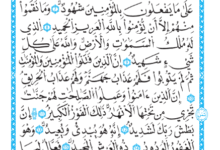 عَلَىٰ مَا يَفْعَلُونَ بِالْمُؤْمِنِينَ شُهُودٌ ۝ وَمَا نَقَمُوا
مِنْهُمْ إِلَّا أَن يُؤْمِنُوا بِاللَّهِ الْعَزِيزِ الْحَمِيدِ ۝ الَّذِي
لَهُ مُلْكُ السَّمَٰوَٰتِ وَالْأَرْضِ وَاللَّهُ عَلَىٰ كُلِّ
شَيْءٍ شَهِيدٌ ۝ إِنَّ الَّذِينَ فَتَنُوا الْمُؤْمِنِينَ وَالْمُؤْمِنَٰتِ
ثُمَّ لَمْ يَتُوبُوا فَلَهُمْ عَذَابُ جَهَنَّمَ وَلَهُمْ عَذَابُ الْحَرِيقِ
۝ إِنَّ الَّذِينَ ءَامَنُوا وَعَمِلُوا الصَّٰلِحَٰتِ لَهُمْ جَنَّٰتٌ
تَجْرِي مِن تَحْتِهَا الْأَنْهَٰرُ ذَٰلِكَ الْفَوْزُ الْكَبِيرُ ۝ إِنَّ
بَطْشَ رَبِّكَ لَشَدِيدٌ ۝ إِنَّهُ هُوَ يُبْدِئُ وَيُعِيدُ ۝ وَهُوَ